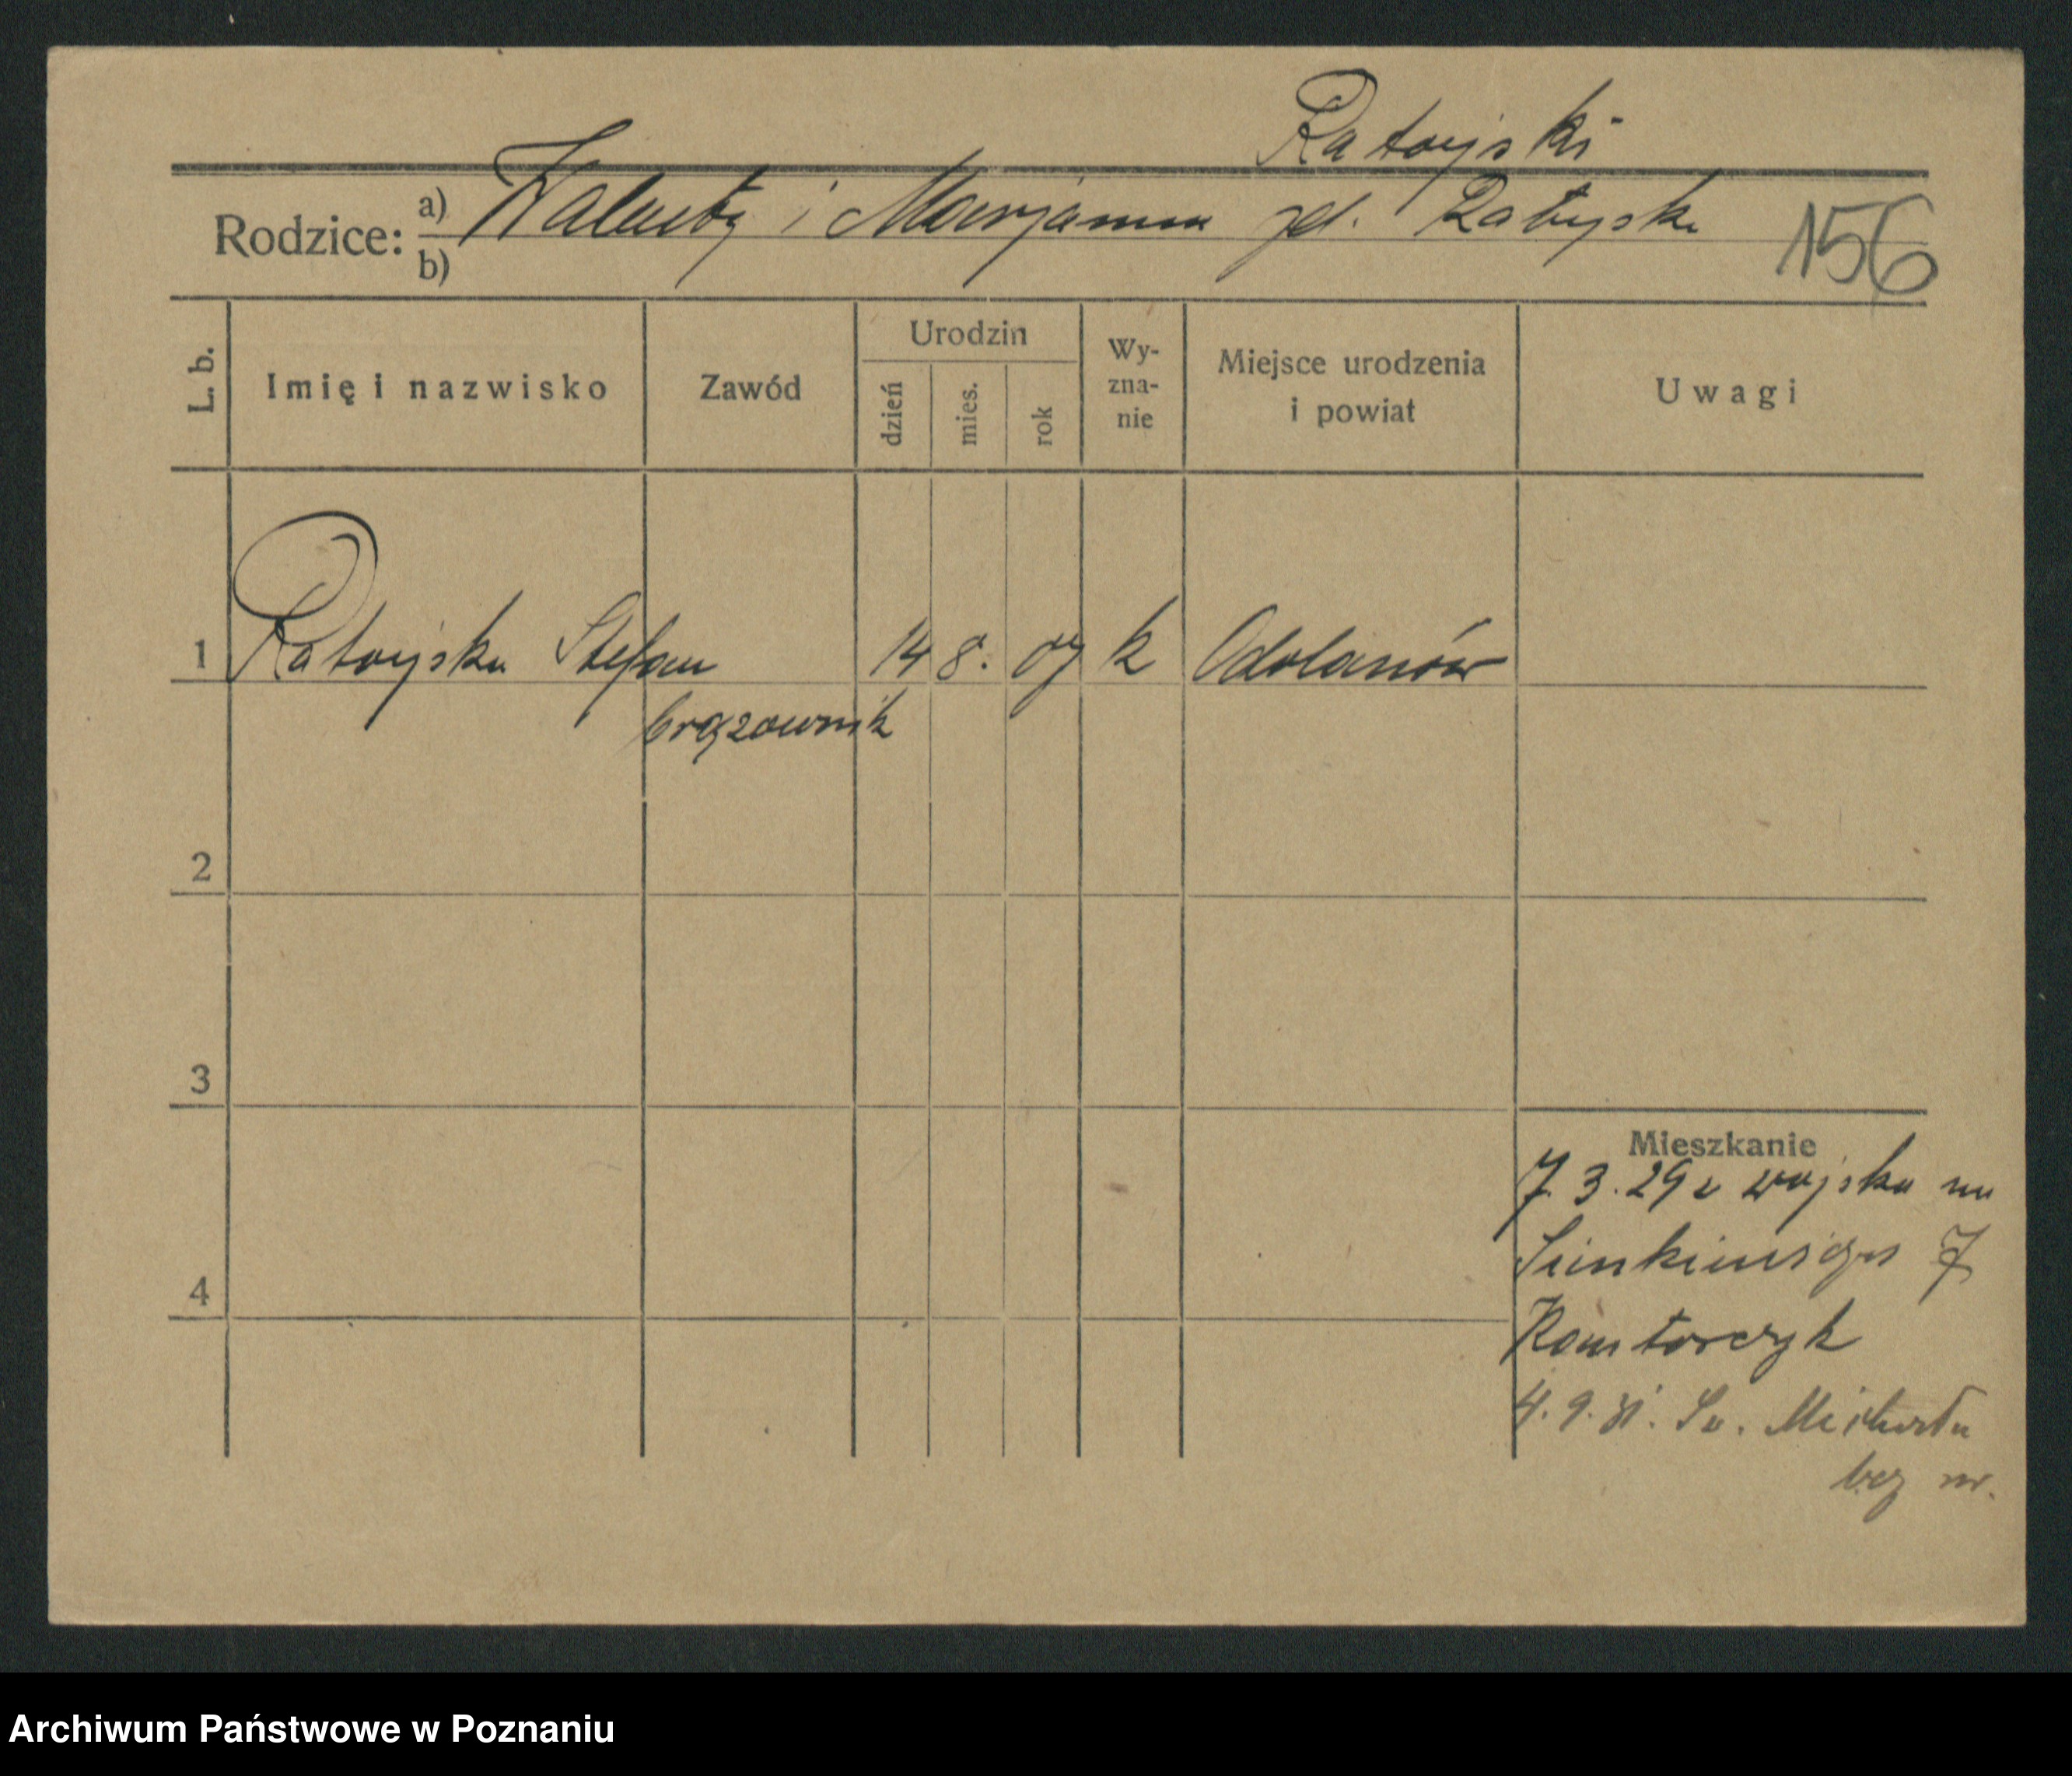 Ratajski
Rodzice: a) Walenty i Marjanna zd. Zabyska
b)
156
L. b. Imię i nazwisko Zawód Urodzin dzień mies. rok Wy-zna-nie Miejsce urodzenia i powiat Uwagi
1 Ratajski Stefan 14 8. 07 k Odolanów
brązownik
2
3
Mieszkanie
7.3.29 z wojska na
Sienkiewicza 7
4
Kantorczyk
4.9.31. Św. Michała
bez nr.
Archiwum Państwowe w Poznaniu